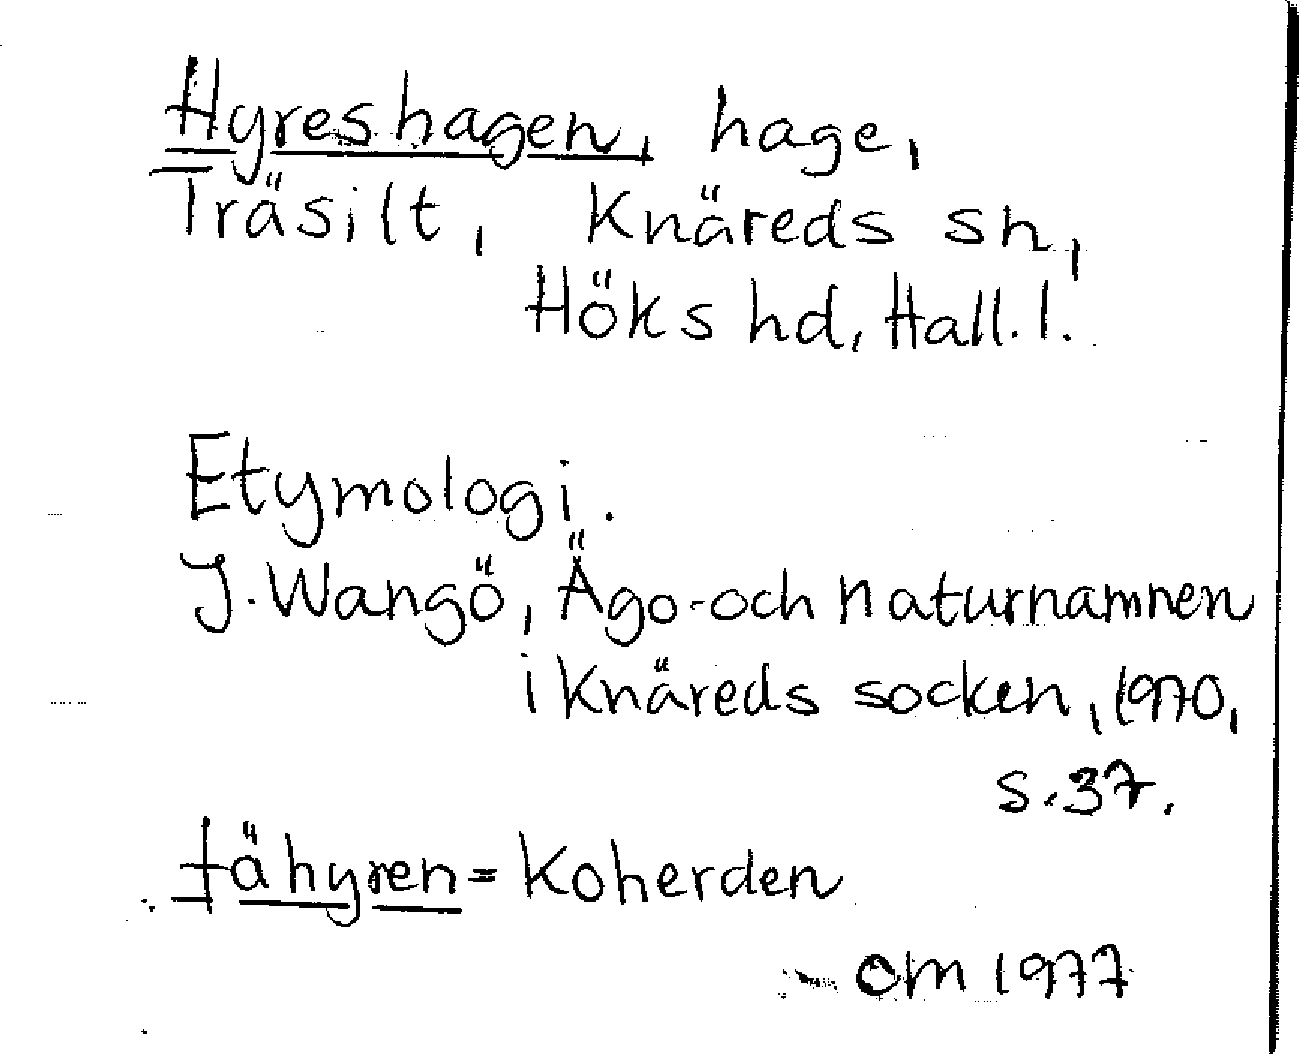 Hyreshagen, hage,
Träsilt, Knäreds sn,
Höks hd, Hall. l.
Etymologi.
J. Wangö, Ägo- och naturnamnen
i Knäreds socken, 1970,
s. 37.
fähyren = Koherden
om 1977